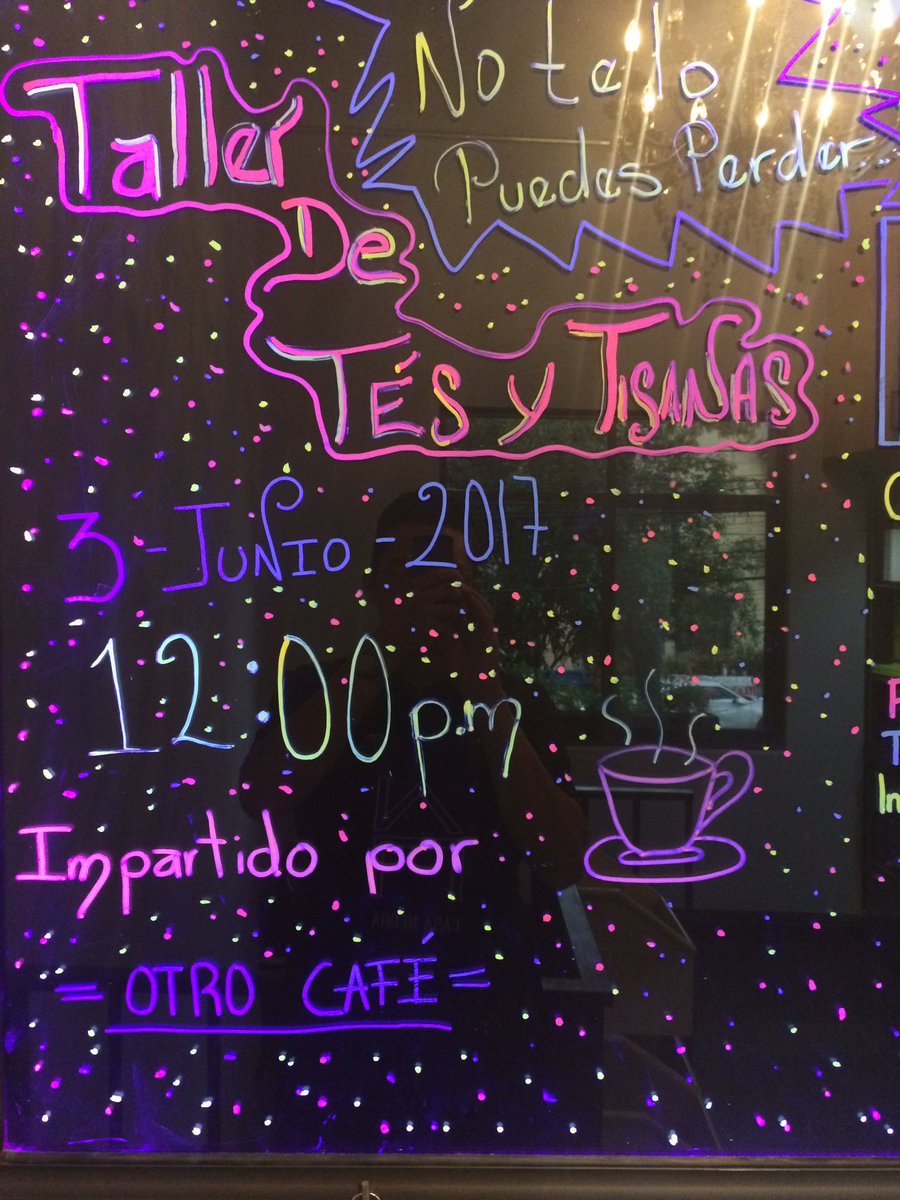 Taller
De
TÉS y TISANAS
No te lo
Puedes Perder...
3-JUNIO-2017
12:00 p.m
Impartido por
= OTRO CAFÉ =